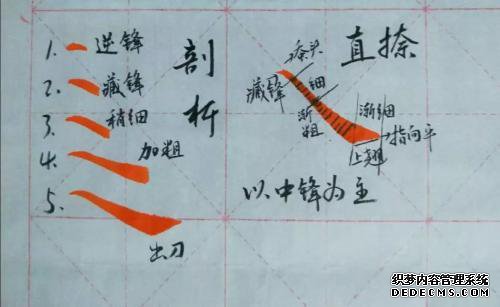 1. 逆锋
2. 藏锋
3. 稍细
4. 加粗
5.
出刀
剖析
直捺
藏锋
细
渐粗
渐细
指向平
上翘
以中锋为主
织梦内容管理系统
DEDECMS.COM